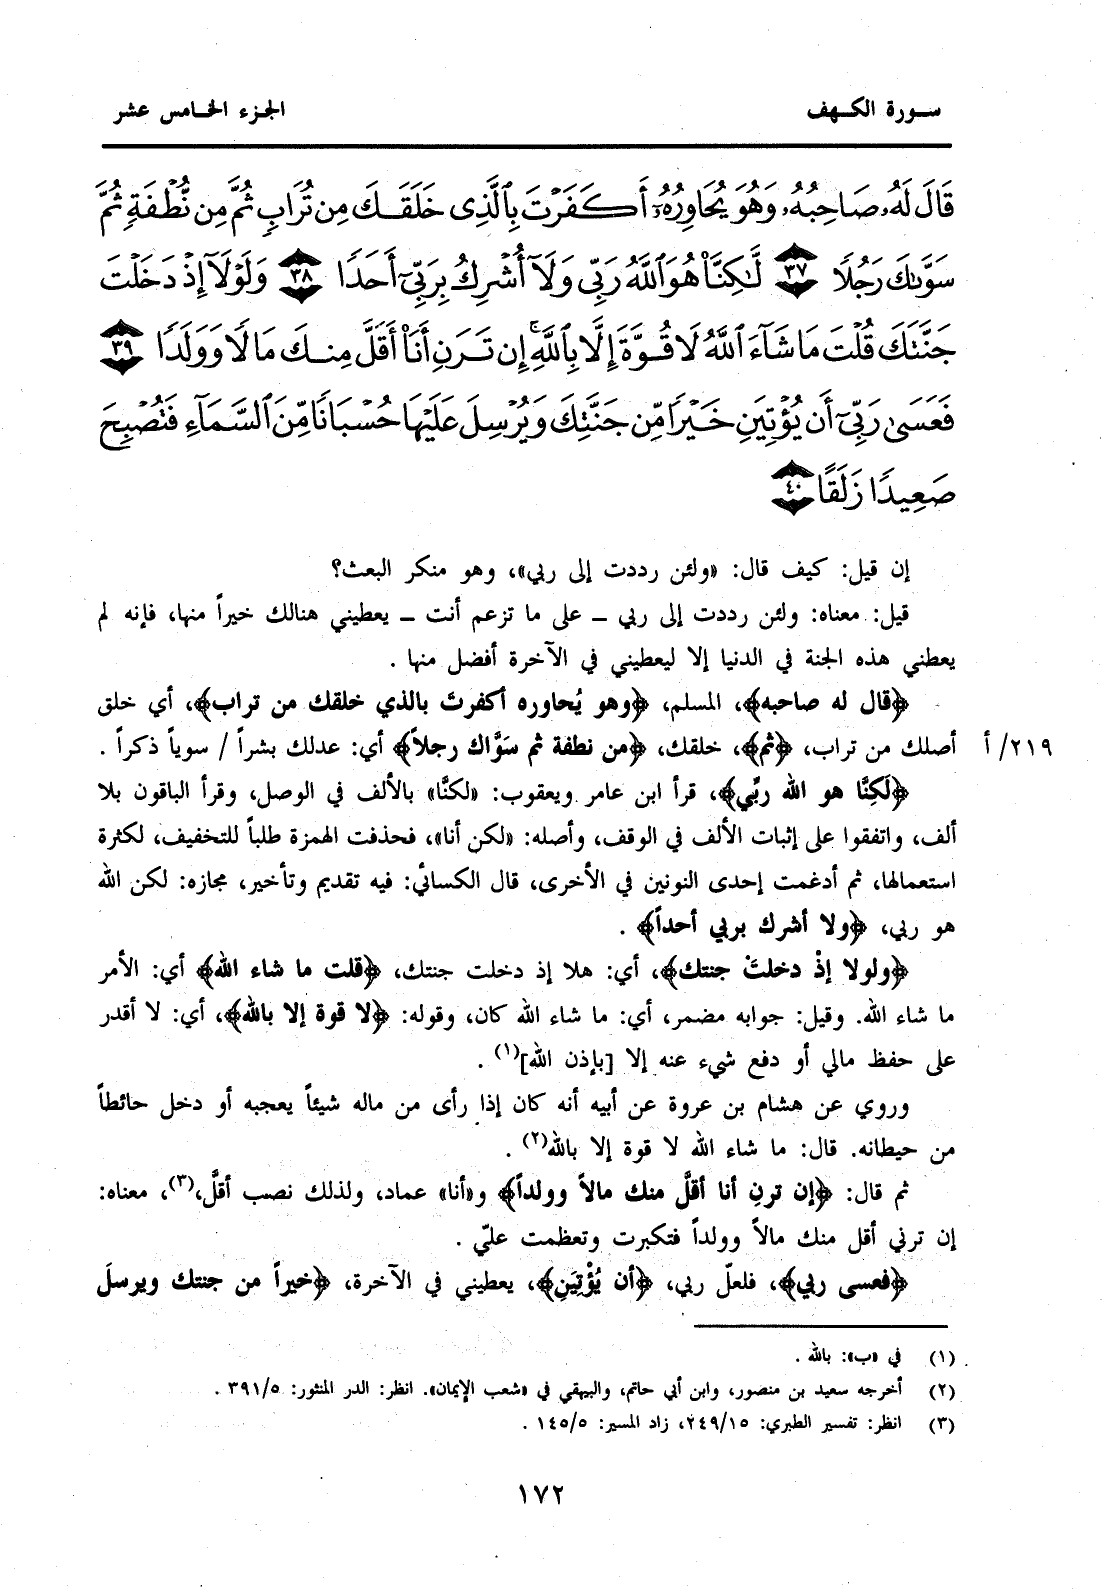 سورة الكهف
الجزء الخامس عشر
قَالَ لَهُۥ صَاحِبُهُۥ وَهُوَ يُحَاوِرُهُۥٓ أَكَفَرْتَ بِٱلَّذِى خَلَقَكَ مِن تُرَابٍ ثُمَّ مِن نُّطْفَةٍ ثُمَّ
سَوَّىٰكَ رَجُلًا ٣٧ لَّٰكِنَّا۠ هُوَ ٱللَّهُ رَبِّى وَلَآ أُشْرِكُ بِرَبِّىٓ أَحَدًا ٣٨ وَلَوْلَآ إِذْ دَخَلْتَ
جَنَّتَكَ قُلْتَ مَا شَآءَ ٱللَّهُ لَا قُوَّةَ إِلَّا بِٱللَّهِ ۚ إِن تَرَنِ أَنَا۠ أَقَلَّ مِنكَ مَالًا وَوَلَدًا ٣٩
فَعَسَىٰ رَبِّىٓ أَن يُؤْتِيَنِ خَيْرًا مِّن جَنَّتِكَ وَيُرْسِلَ عَلَيْهَا حُسْبَانًا مِّنَ ٱلسَّمَآءِ فَتُصْبِحَ
صَعِيدًا زَلَقًا ٤٠
إن قيل: كيف قال: «ولئن رددت إلى ربي»، وهو منكر البعث؟
قيل: معناه: ولئن رددت إلى ربي ـ على ما تزعم أنت ـ يعطيني هنالك خيراً منها، فإنه لم
يعطني هذه الجنة في الدنيا إلا ليعطيني في الآخرة أفضل منها .
﴿قال له صاحبه﴾، المسلم، ﴿وهو يُحاوره أكفرتَ بالذي خلقك من تراب﴾، أي خلق
أصلك من تراب، ﴿ثم﴾، خلقك، ﴿من نطفة ثم سَوَّاك رجلاً﴾ أي: عدلك بشراً / سوياً ذكراً . ٢١٩/ أ
﴿لَكِنَّا هو الله ربِّي﴾، قرأ ابن عامر ويعقوب: «لكنَّا» بالألف في الوصل، وقرأ الباقون بلا
ألف، واتفقوا على إثبات الألف في الوقف، وأصله: «لكن أنا»، فحذفت الهمزة طلباً للتخفيف، لكثرة
استعمالها، ثم أدغمت إحدى النونين في الأخرى، قال الكسائي: فيه تقديم وتأخير، مجازه: لكن الله
هو ربي، ﴿ولا أشرك بربي أحداً﴾ .
﴿ولولا إذْ دخلتَْ جنتك﴾، أي: هلا إذ دخلت جنتك، ﴿قلت ما شاء الله﴾ أي: الأمر
ما شاء الله. وقيل: جوابه مضمر، أي: ما شاء الله كان، وقوله: ﴿لا قوة إلا بالله﴾، أي: لا أقدر
على حفظ مالي أو دفع شيء عنه إلا [بإذن الله](١) .
وروي عن هشام بن عروة عن أبيه أنه كان إذا رأى من ماله شيئاً يعجبه أو دخل حائطاً
من حيطانه. قال: ما شاء الله لا قوة إلا بالله(٢) .
ثم قال: ﴿إن ترنِ أنا أقلَّ منك مالاً وولداً﴾ و«أنا» عماد، ولذلك نصب أقلَّ،(٣)، معناه:
إن ترني أقل منك مالاً وولداً فتكبرت وتعظمت عليّ .
﴿فعسى ربي﴾، فلعلّ ربي، ﴿أن يُؤْتِيَنِ﴾، يعطيني في الآخرة، ﴿خيراً من جنتك ويرسلَ
(١) في «ب»: بالله .
(٢) أخرجه سعيد بن منصور، وابن أبي حاتم، والبيهقي في «شعب الإيمان». انظر: الدر المنثور: ٣٩١/٥ .
(٣) انظر: تفسير الطبري: ٢٤٩/١٥، زاد المسير: ١٤٥/٥ .
١٧٢